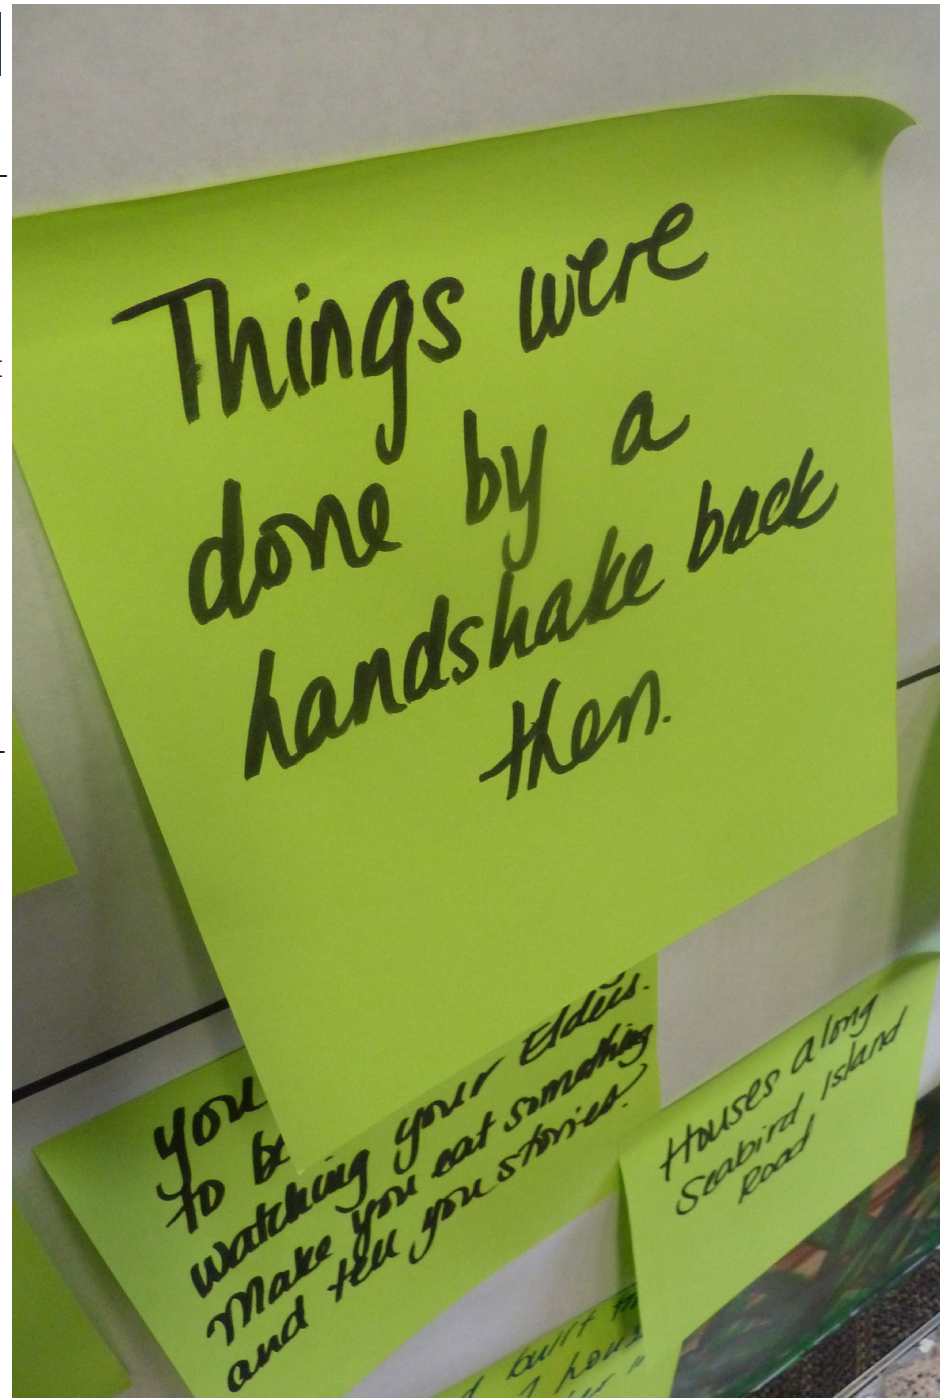 Things were
done by a
handshake back
then.
you
to be
your Elders.
watching
make you eat something
and tell you stories.
Houses along
Seabird Island
Road
built